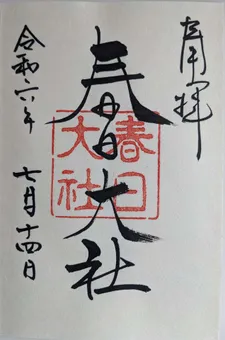 奉拝
春日大社
春日大社
令和六年 七月十四日